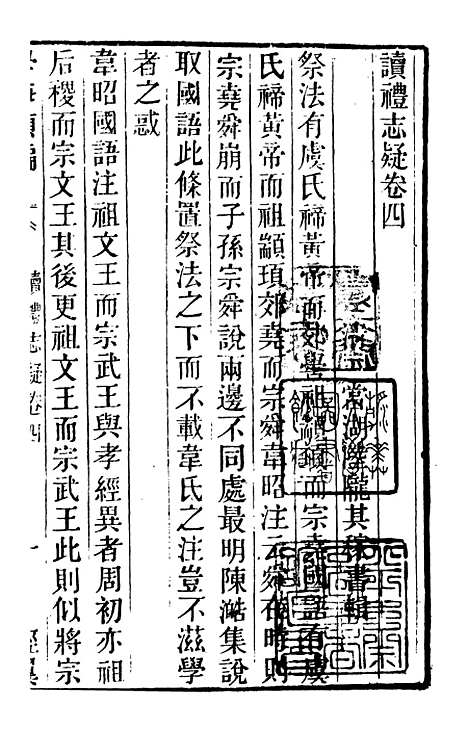 讀禮志疑卷四
當湖陸隴其稼書輯
祭法有虞氏禘黃帝而郊嚳祖顓頊而宗堯國語有虞
氏禘黃帝而祖顓頊郊堯而宗舜韋昭注云舜在時則
宗堯舜崩而子孫宗舜說兩邊不同處最明陳澔集說
取國語此條置祭法之下而不載韋氏之注豈不滋學
者之惑
韋昭國語注祖文王而宗武王與孝經異者周初亦祖
后稷而宗文王其後更祖文王而宗武王此則似將宗
讀禮志疑卷四 一 經翼